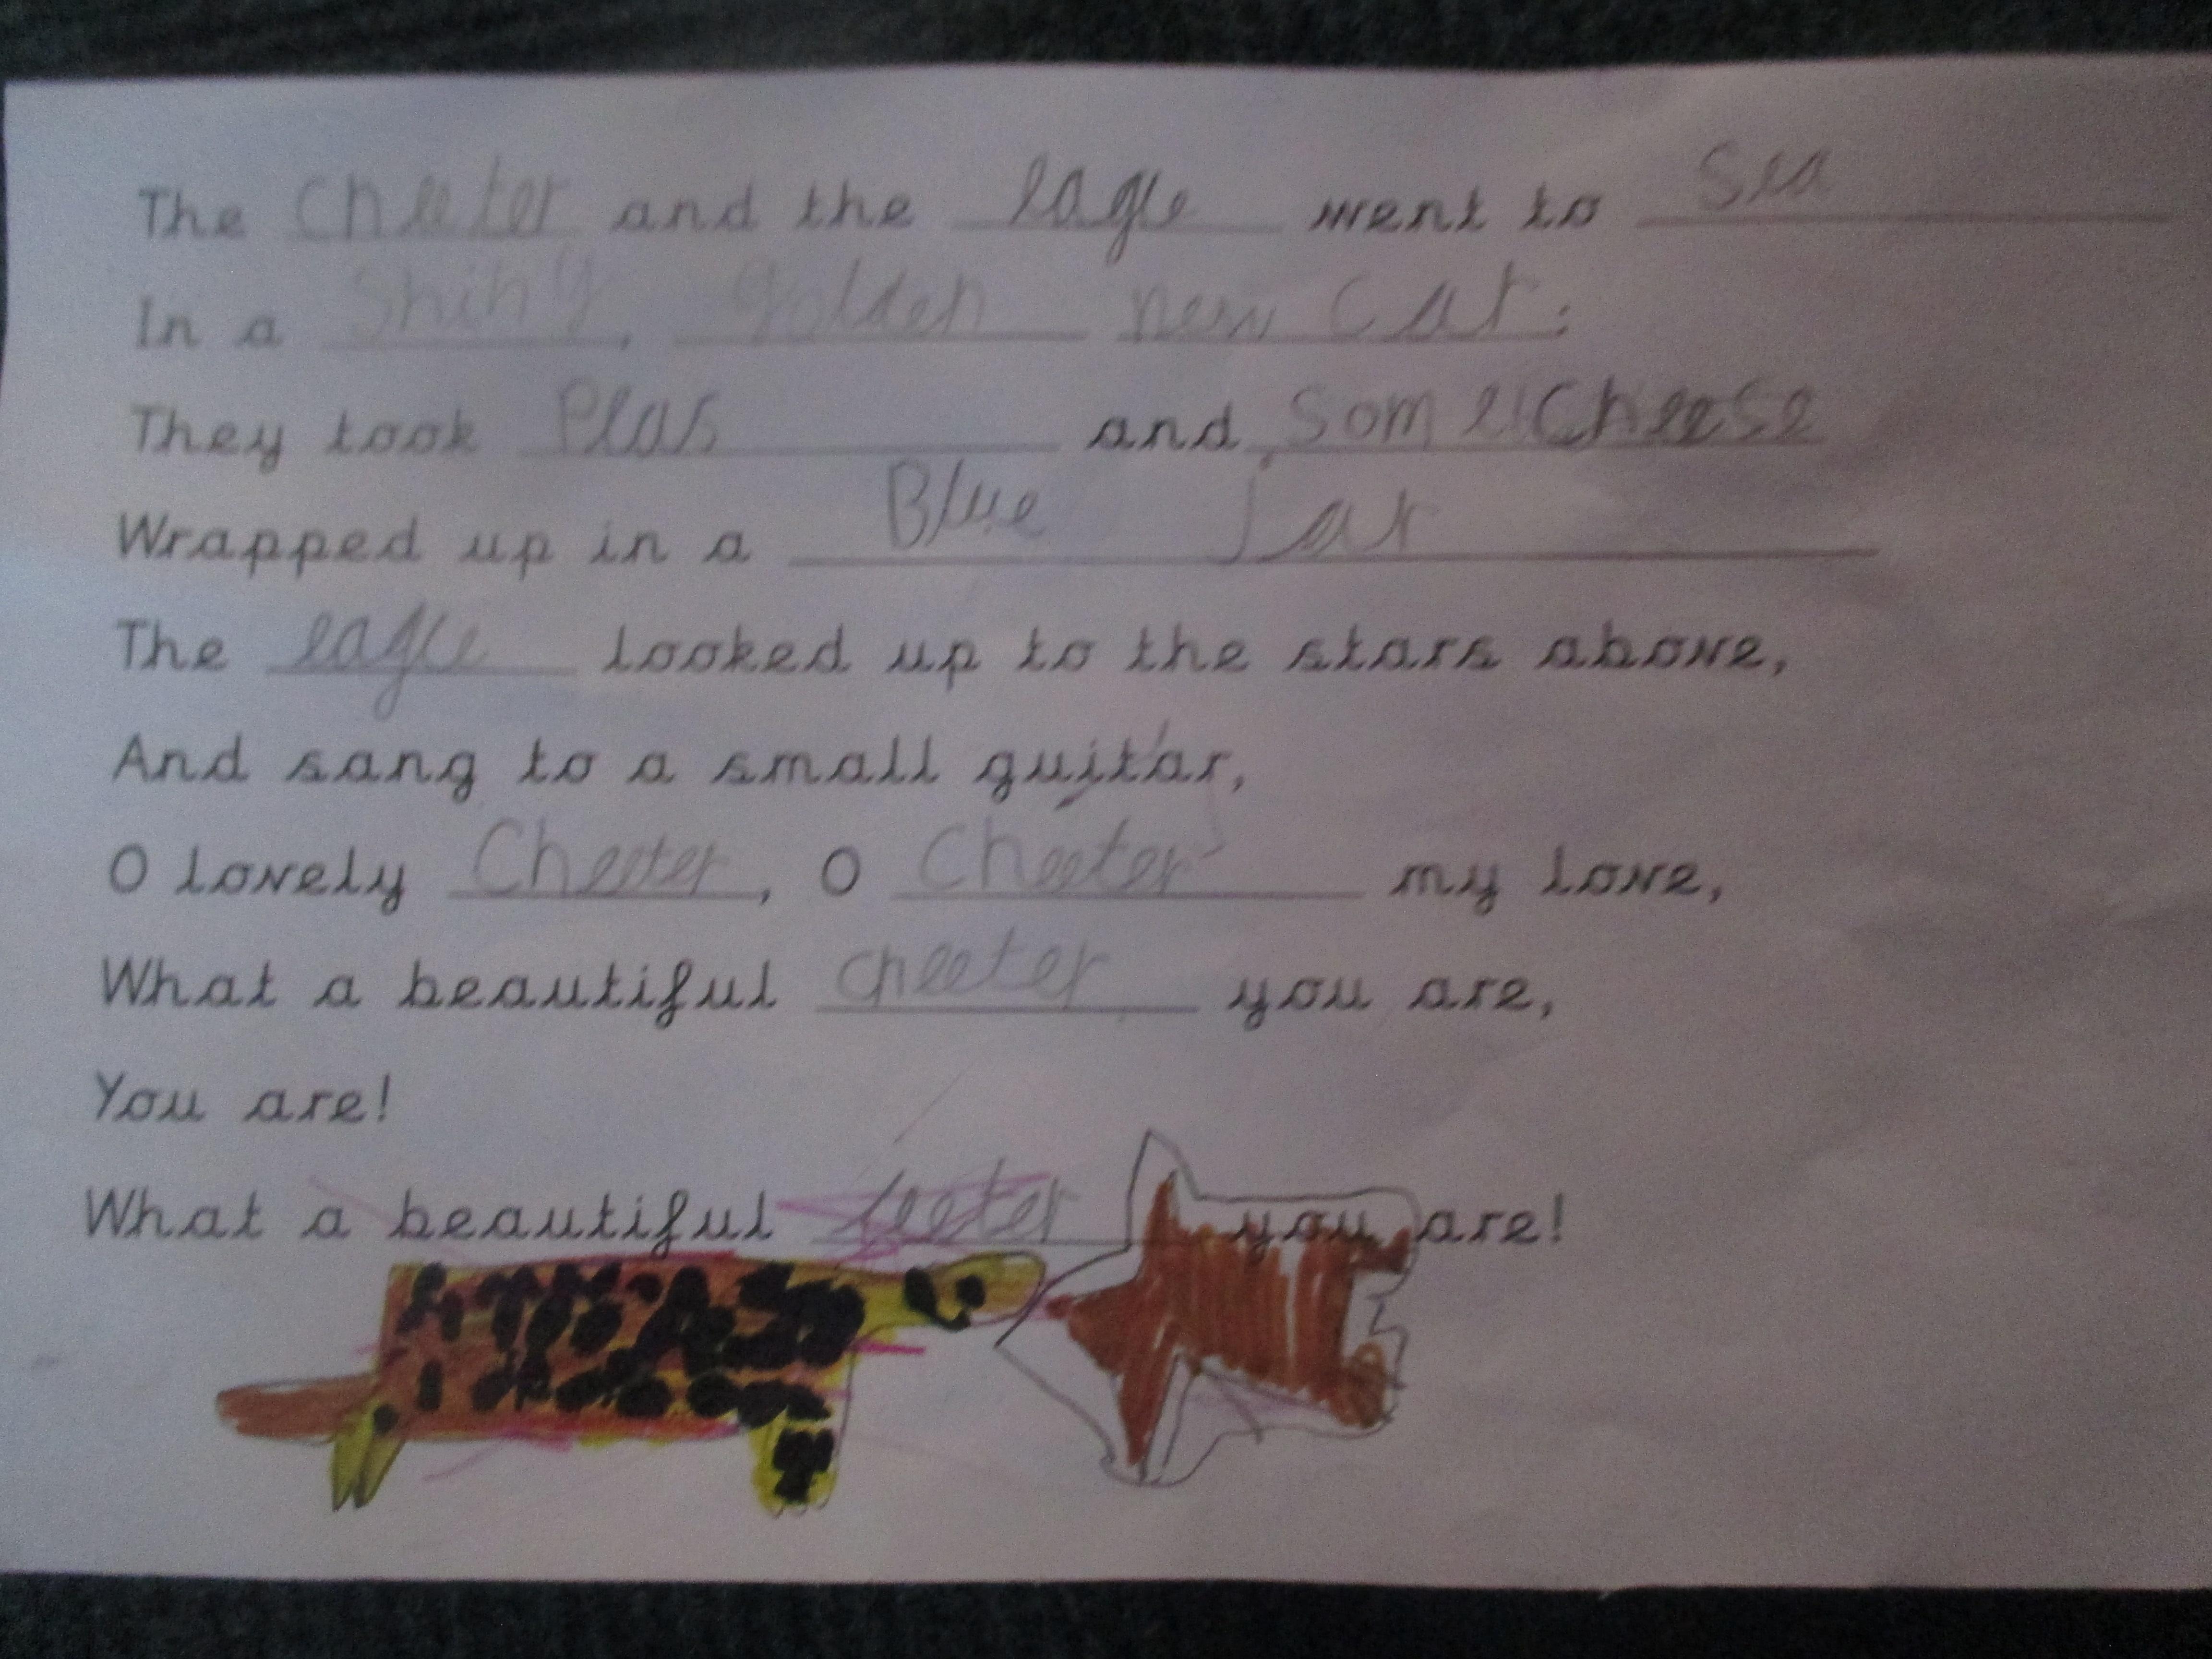 The cheeter and the eagle went to sea
In a shiny, golden new car.
They took Peas and some cheese
Wrapped up in a Blue jar
The eagle looked up to the stars above,
And sang to a small guitar,
O lovely Cheeter, O Cheeter my love,
What a beautiful cheeter you are,
You are!
What a beautiful you are!